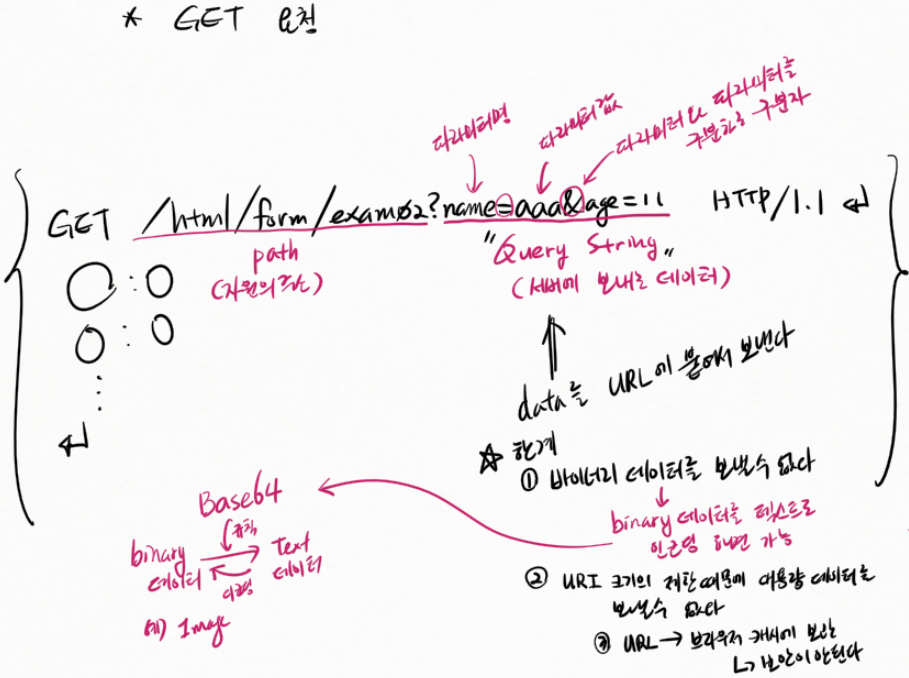 * GET 요청
파라미터명
파라미터값
파라미터와 파라미터를
구분하는 구분자
GET /html/form/exam02?name=aaa&age=11 HTTP/1.1 ↵
path
(자원의 주소)
"Query String"
(서버에 보내는 데이터)
○ : ○
○ : ○
⋮
↵
data를 URL에 붙여서 보낸다
☆ 한계
① 바이너리 데이터를 보낼 수 없다
binary 데이터를 텍스트로
인코딩 하면 가능
Base64
규칙
binary
데이터
Text
데이터
예) Image
② URI 크기의 제한 때문에 대용량 데이터를
보낼 수 없다
③ URL → 브라우저 캐시에 보관
↳ 보안이 안된다